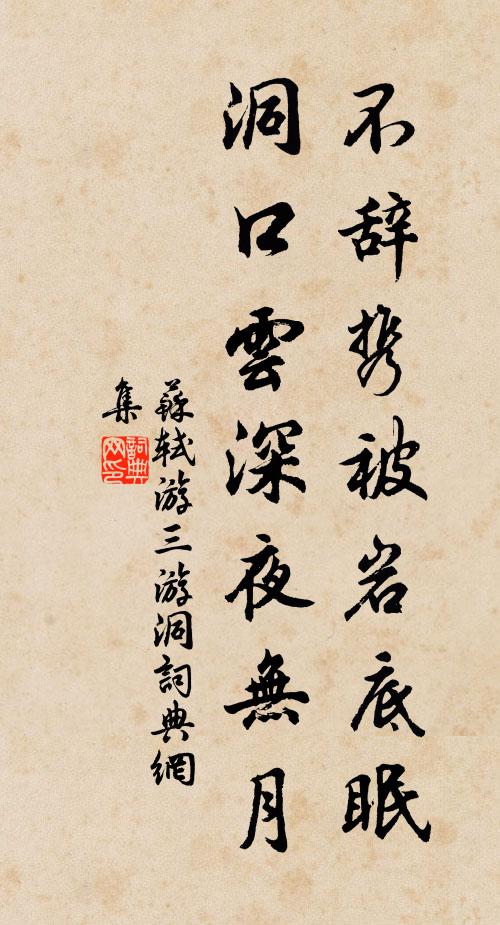 不辞携被岩底眠
洞口雲深夜無月
蘇轼游三游洞詞典網
集
詞典网印